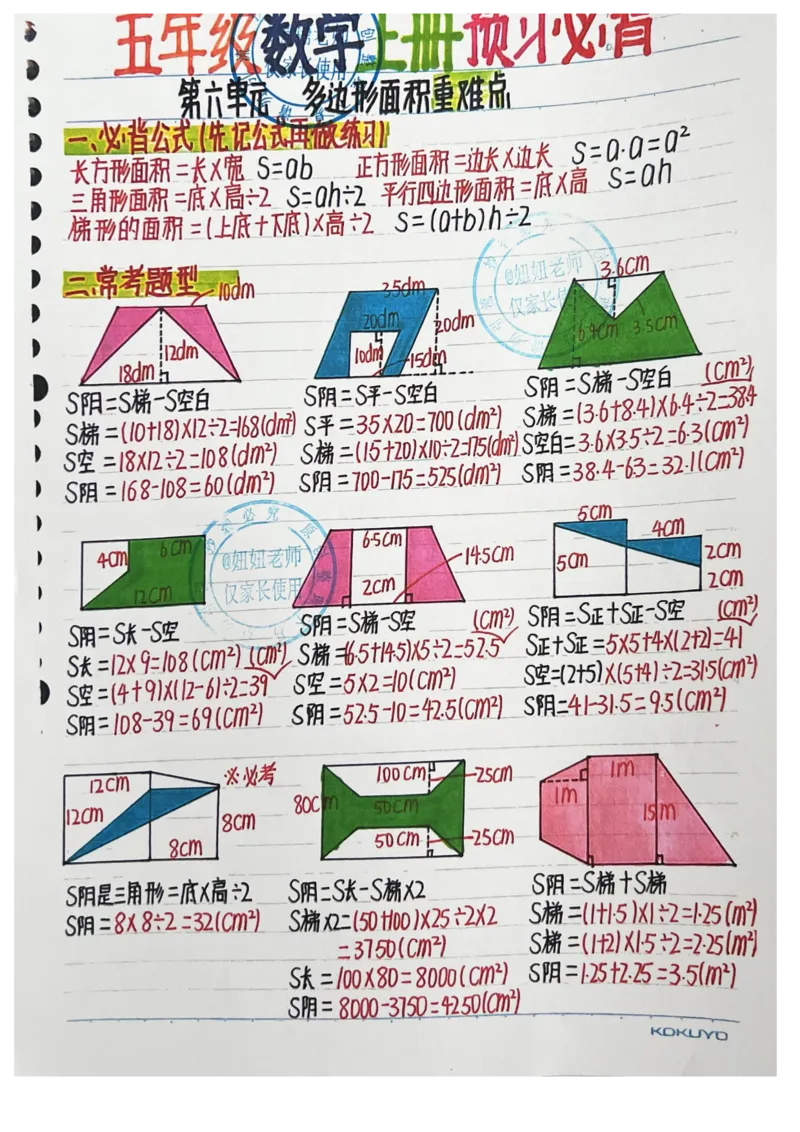 五年级数学上册预习必背
第六单元 多边形面积重难点
一、必背公式(先记公式再做练习)
长方形面积=长×宽 S=ab 正方形面积=边长×边长 S=a·a=a²
三角形面积=底×高÷2 S=ah÷2 平行四边形面积=底×高 S=ah
梯形的面积=(上底+下底)×高÷2 S=(a+b)h÷2
@妞妞老师
仅家长使用
二、常考题型
10dm
12dm
18dm
S阴=S梯-S空白
S梯=(10+18)×12÷2=168(dm²)
S空=18×12÷2=108(dm²)
S阴=168-108=60(dm²)
35dm
20dm
20dm
10dm
15dm
S阴=S平-S空白
S平=35×20=700(dm²)
S梯=(15+20)×10÷2=175(dm²)
S阴=700-175=525(dm²)
3.6cm
6.4cm 3.5cm
S阴=S梯-S空白 (cm²)
S梯=(3.6+8.4)×6.4÷2=38.4
S空白=3.6×3.5÷2=6.3(cm²)
S阴=38.4-6.3=32.1(cm²)
4cm
6cm
12cm
S阴=S长-S空
S长=12×9=108(cm²) (cm²)
S空=(4+9)×(12-6)÷2=39
S阴=108-39=69(cm²)
@妞妞老师
仅家长使用
6.5cm
14.5cm
2cm
S阴=S梯-S空 (cm²)
S梯=(6.5+14.5)×5÷2=52.5
S空=5×2=10(cm²)
S阴=52.5-10=42.5(cm²)
5cm
4cm
5cm
2cm
2cm
S阴=S正+S正-S空 (cm²)
S正+S正=5×5+4×(2+2)=41
S空=(2+5)×(5+4)÷2=31.5(cm²)
S阴=41-31.5=9.5(cm²)
12cm
※必考
12cm
8cm
8cm
S阴是三角形=底×高÷2
S阴=8×8÷2=32(cm²)
100cm
25cm
80cm
50cm
50cm
25cm
S阴=S长-S梯×2
S梯×2=(50+100)×25÷2×2
=3750(cm²)
S长=100×80=8000(cm²)
S阴=8000-3750=4250(cm²)
1m
1m
1.5m
S阴=S梯+S梯
S梯=(1+1.5)×1÷2=1.25(m²)
S梯=(1+2)×1.5÷2=2.25(m²)
S阴=1.25+2.25=3.5(m²)
KOKUYO